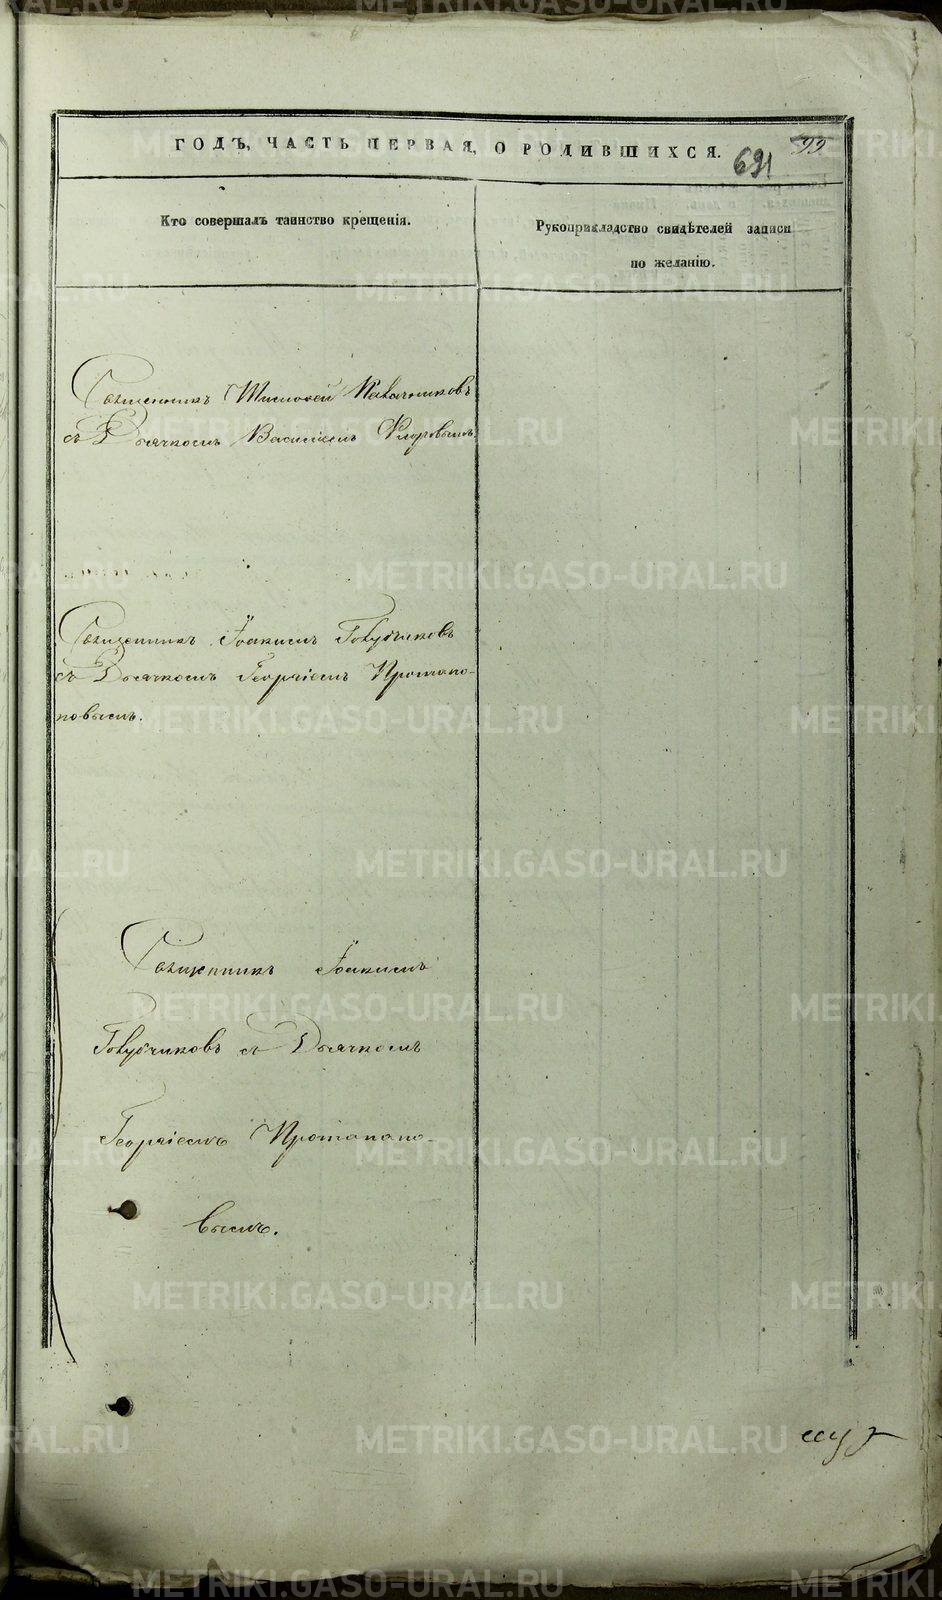 ГОДЪ, ЧАСТЬ ПЕРВАЯ, О РОДИВШИХСЯ.
691
99
Кто совершалъ таинство крещенія.
Рукоприкладство свидѣтелей записи
по желанію.
Священникъ Тимоѳей
съ Дьячкомъ Василіемъ Флоровымъ.
Священникъ Іоакимъ Голубчиковъ
съ Дьячкомъ Георгіемъ Протапо-
повымъ.
Священникъ Іоакимъ
Голубчиковъ съ Дьячкомъ
Георгіемъ Протапопо-
вымъ.
METRIKI.GASO-URAL.RU